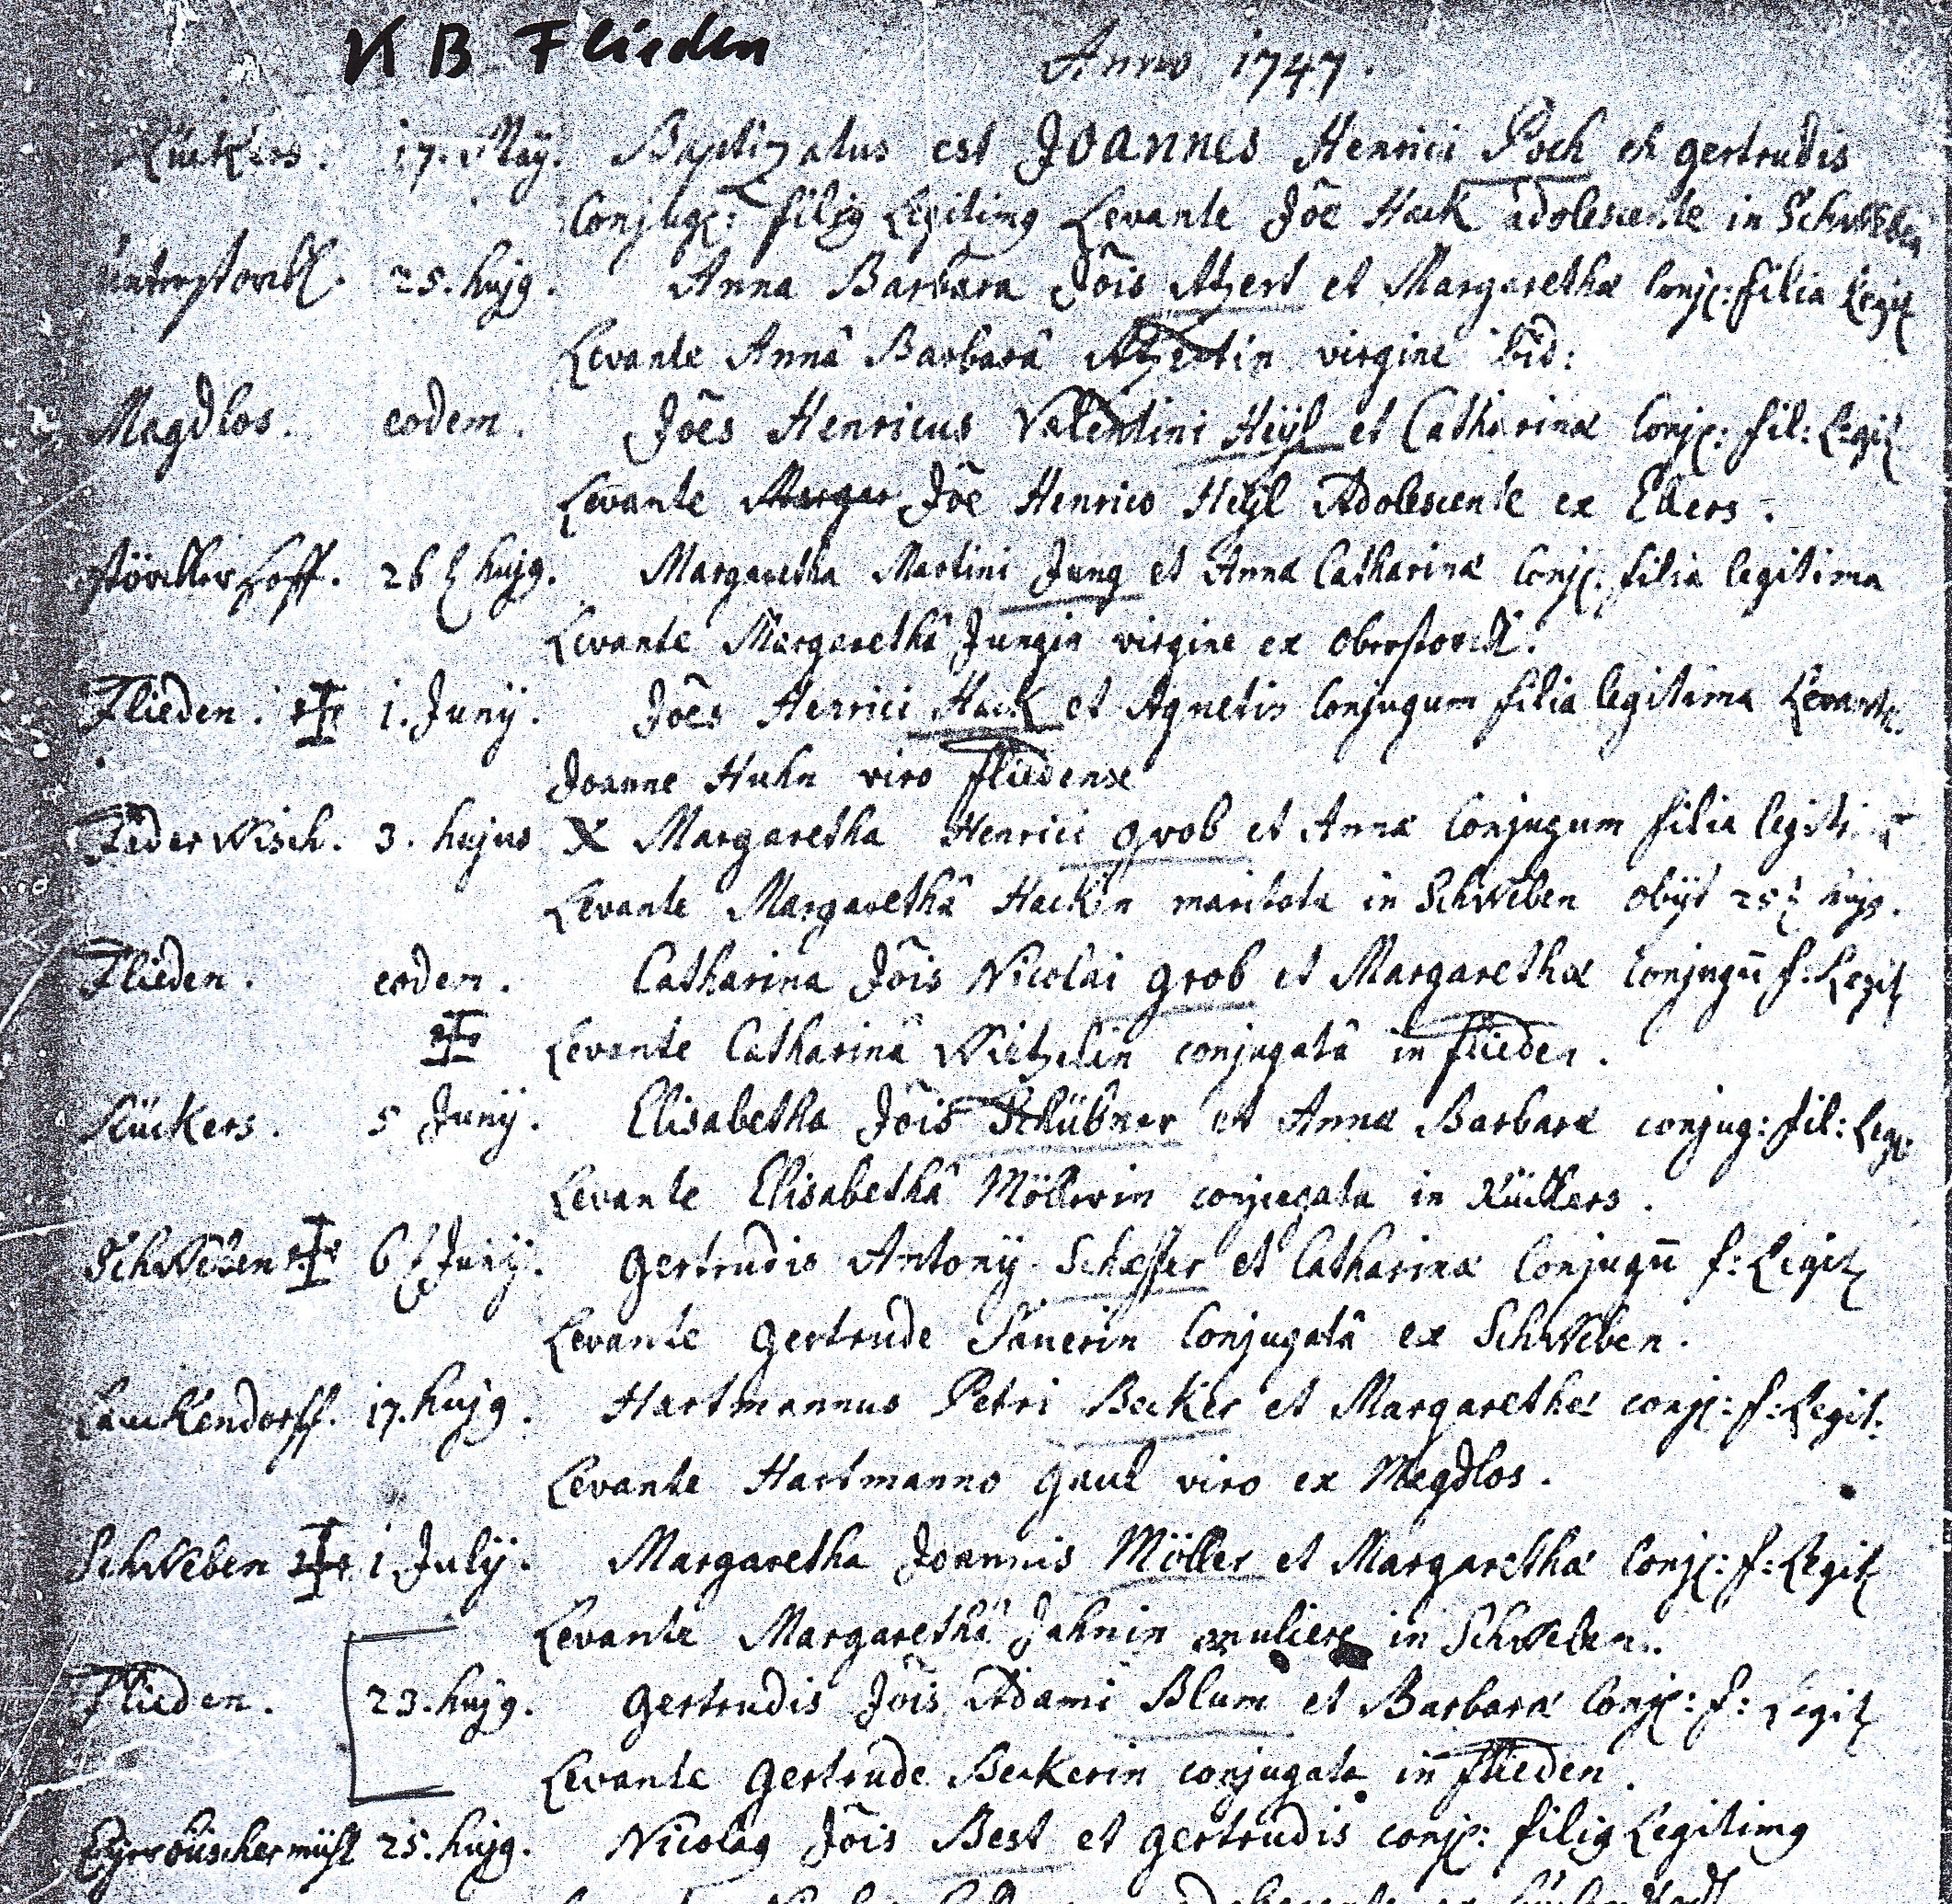 KB Flieden
Anno 1747.
Rückers. 17. Maÿ. Baptizatus est Joannes Henrici Poch et gertrudis
Conjug: filiꝰ Legitimꝰ Levante Jõe Hack adolescente in Schweben
25. hujꝰ. Anna Barbara Jõis Atzert et Margarethæ Conj: filia Legit
Levante Annâ Barbarâ Atzertin virgine ibid:
Magdlos. eodem. Jões Henricus Valentini Heÿl et Catharinæ Conj: fil: Legit
Levante Margar Jõe Henrico Heÿl Adolescente ex Ellers.
Störckler Hoff. 26 hujꝰ. Margaretha Martini Jung et Annæ Catharinæ Conj: filia legitima
Levante Margarethâ Jungin virgine ex oberstorck.
Flieden. 1. Junÿ. Jões Henrici Hack et Agnetis Conjugum filia legitima Levante
Joanne Huhn viro fliedense
Federwisch. 3. hujus X Margaretha Henrici grob et Annæ Conjugum filia legiti
Levante Margarethâ Hackin maritata in Schweben obÿt 25 hujꝰ.
Flieden. eodem. Catharina Jõis Nicolai grob et Margarethæ Conjugū f: Legit
Levante Catharinâ Wietzelin conjugatâ in flieden.
Rückers. 5 Junÿ. Elisabetha Jõis Schübner et Annæ Barbaræ conjug: fil: Leg:
Levante Elisabethâ Möllerin conjugata in Rückers.
Schweben 6 Junÿ. gertrudis Antonÿ Schæffer et Catharinæ Conjugū f: Legit
Levante gertrude Sauerin Conjugatâ ex Schweben.
Lauckendorff. 17. hujꝰ. Hartmannus Petri Becker et Margarethæ conj: f: Legit.
Levante Hartmanno gaul viro ex Magdlos.
Schweben 1 Julÿ. Margaretha Joannis Möller et Margarethæ Conj: f: Legit
Levante Margarethâ Jahnin muliere in Schweben.
Flieden. 23. hujꝰ. gertrudis Jõis Adami Blum et Barbaræ Conj: f: Legit
Levante gertrude Beckerin conjugata in flieden.
25. hujꝰ. Nicolaꝰ Jõis Best et gertrudis conj: filiꝰ Legitimꝰ